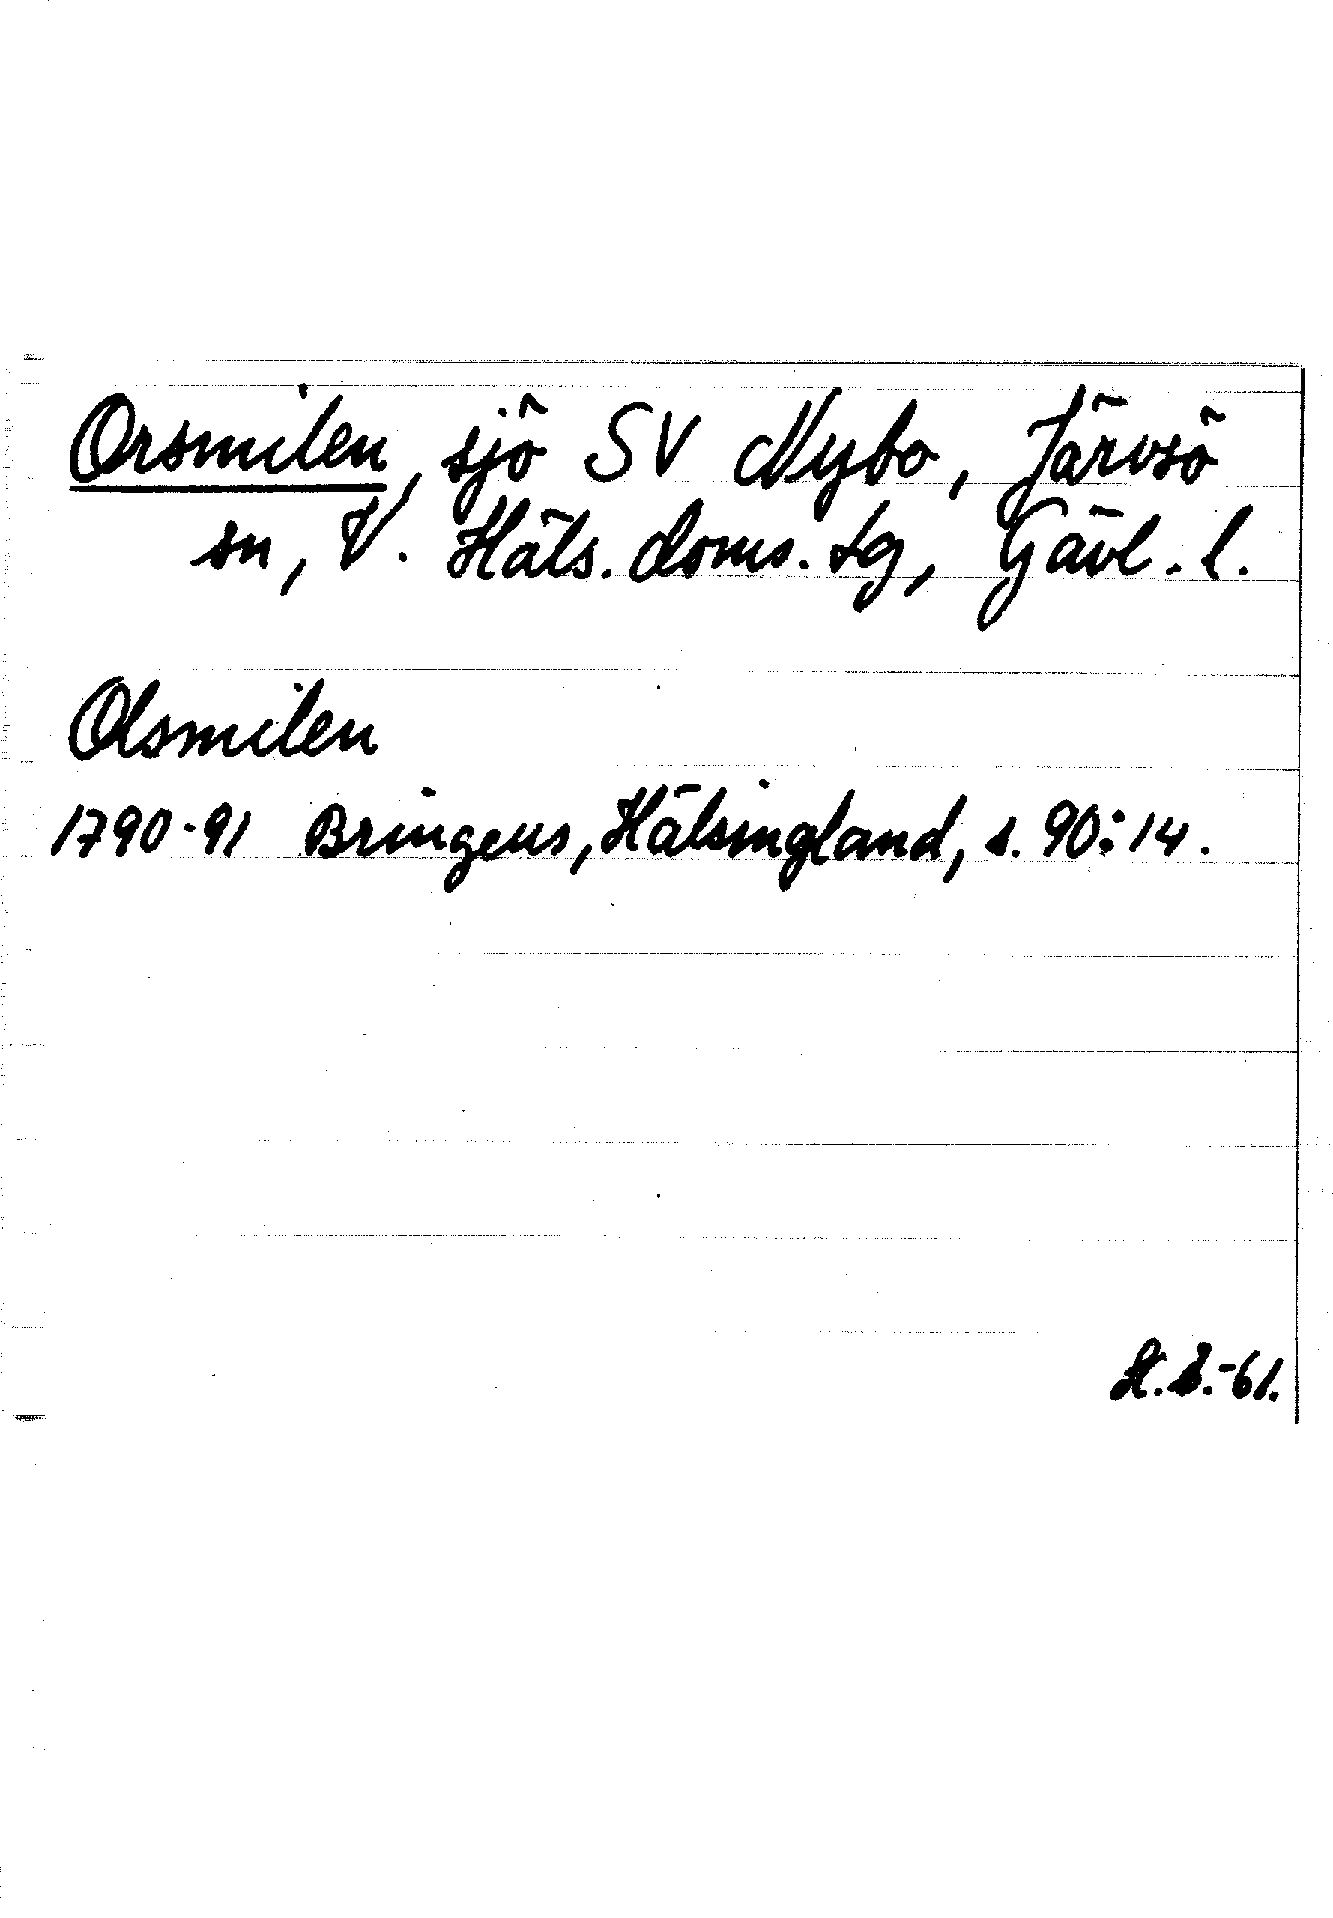 Orsmilen, sjö SV Nybo, Järvsö
sn, V. Häls. doms. tg, Gävl. l.
Olsmilen
1790-91 Bringeus, Hälsingland, s. 90:14.
St. B.-61.